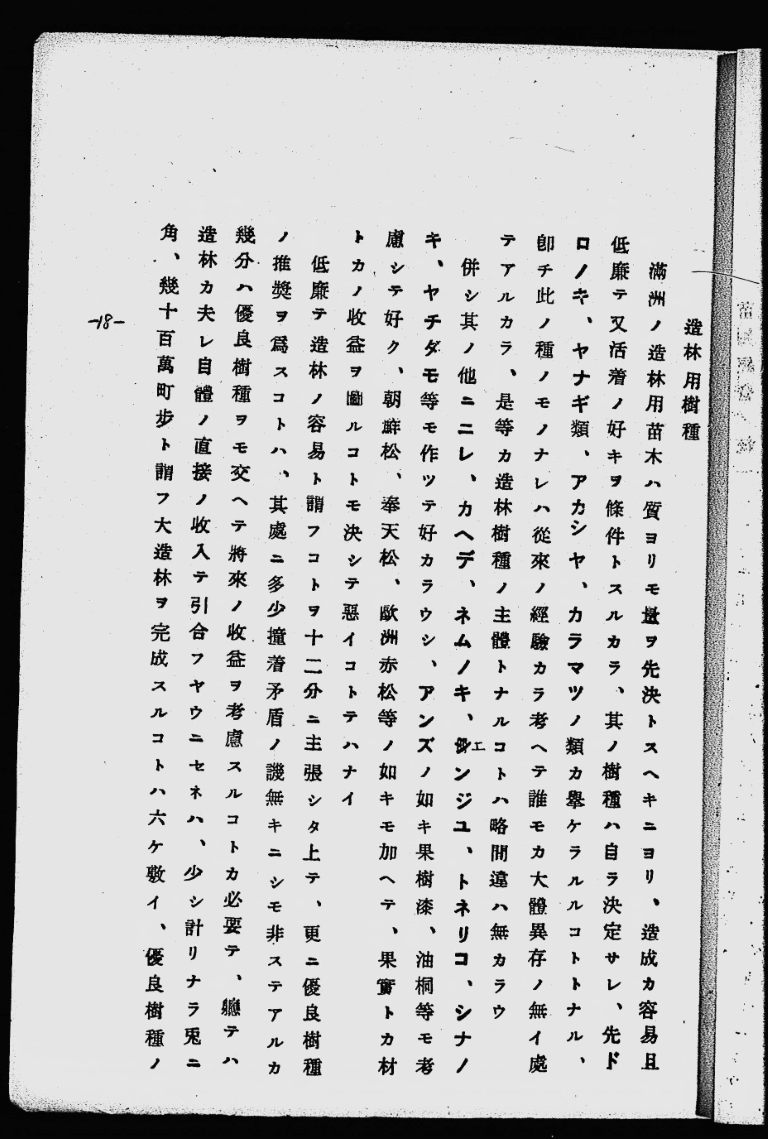 造林用樹種
滿洲ノ造林用苗木ハ質ヨリモ量ヲ先決トスヘキニヨリ、造成カ容易且
低廉テ又活着ノ好キヲ條件トスルカラ、其ノ樹種ハ自ラ決定サレ、先ド
ロノキ、ヤナギ類、アカシヤ、カラマツノ類カ擧ケラルルコトトナル、
卽チ此ノ種ノモノナレハ從來ノ經驗カラ考ヘテ誰モカ大體異存ノ無イ處
テアルカラ、是等カ造林樹種ノ主體トナルコトハ略間違ハ無カラウ
併シ其ノ他ニニレ、カヘデ、ネムノキ、エンジユ、トネリコ、シナノ
キ、ヤチダモ等モ作ツテ好カラウシ、アンズノ如キ果樹漆、油桐等モ考
慮シテ好ク、朝鮮松、奉天松、歐洲赤松等ノ如キモ加ヘテ、果實トカ材
トカノ收益ヲ圖ルコトモ決シテ惡イコトテハナイ
低廉テ造林ノ容易ト謂フコトヲ十二分ニ主張シタ上テ、更ニ優良樹種
ノ推奬ヲ爲スコトハ、其處ニ多少撞着矛盾ノ譏無キニシモ非ステアルカ
幾分ハ優良樹種ヲモ交ヘテ將來ノ收益ヲ考慮スルコトカ必要テ、軈テハ
造林カ夫レ自體ノ直接ノ收入テ引合フヤウニセネハ、少シ計リナラ兎ニ
角、幾十百萬町步ト謂フ大造林ヲ完成スルコトハ六ケ敷イ、優良樹種ノ
-18-